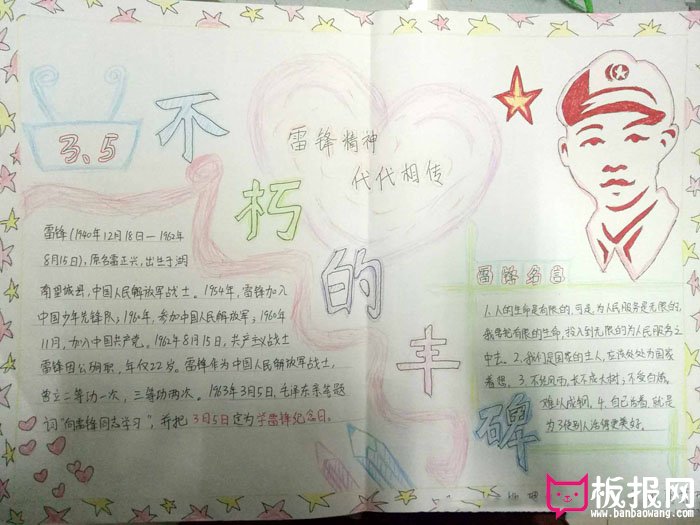 3.5
不朽的丰碑
雷锋精神
代代相传
雷锋(1940年12月18日—1962年
8月15日),原名雷正兴,出生于湖
南望城县,中国人民解放军战士。1954年,雷锋加入
中国少年先锋队;1960年,参加中国人民解放军;1960年
11月,加入中国共产党。1962年8月15日,共产主义战士
雷锋因公殉职,年仅22岁。雷锋作为中国人民解放军战士,
曾立二等功一次,三等功两次。1963年3月5日,毛泽东亲笔题
词“向雷锋同志学习”,并把3月5日定为学雷锋纪念日。
雷锋名言
1.人的生命是有限的,可是,为人民服务是无限的,
我要把有限的生命,投入到无限的为人民服务之
中去。2.我们是国家的主人,应该处处为国家
着想。3.不经风雨,长不成大树;不受百炼,
难以成钢。4.自己活着,就是
为了使别人活得更美好。
板报网
www.banbaowang.com